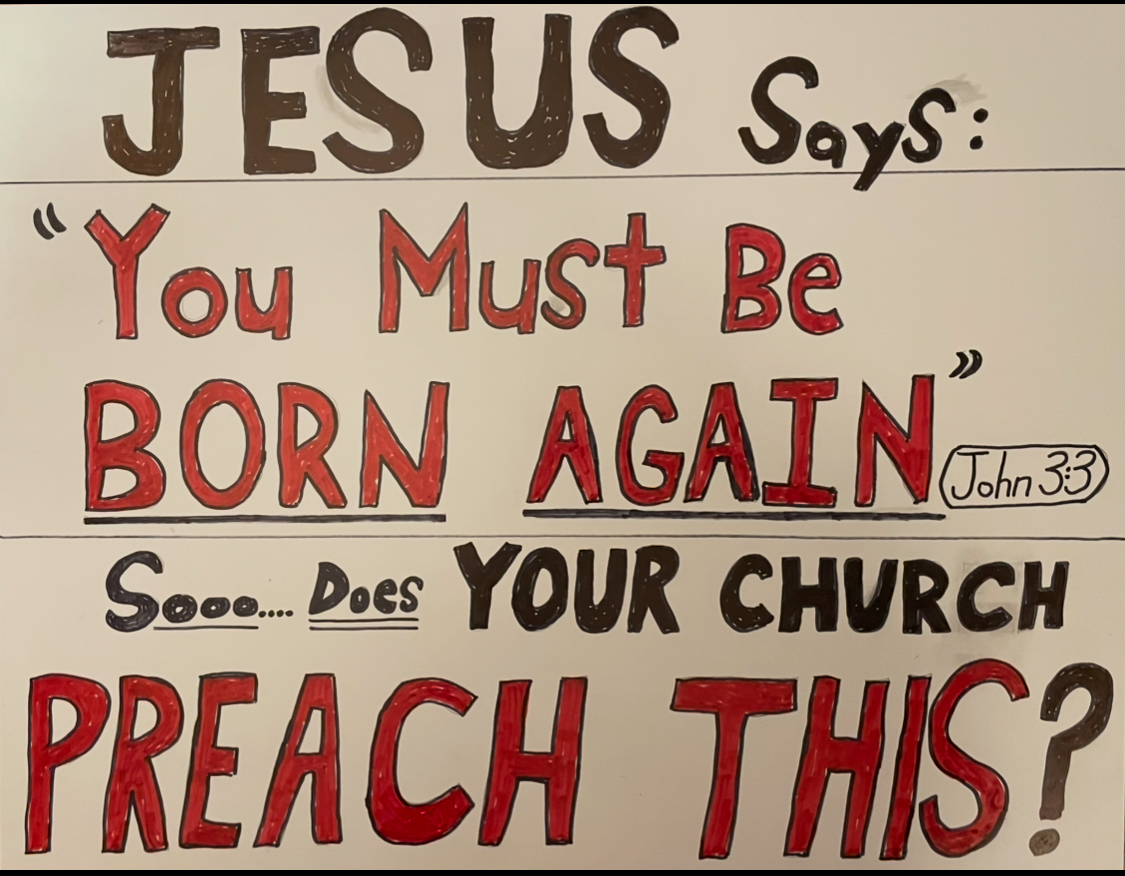 JESUS Says:
"You Must Be
BORN AGAIN"
John 3:3
Sooo.... Does YOUR CHURCH
PREACH THIS?